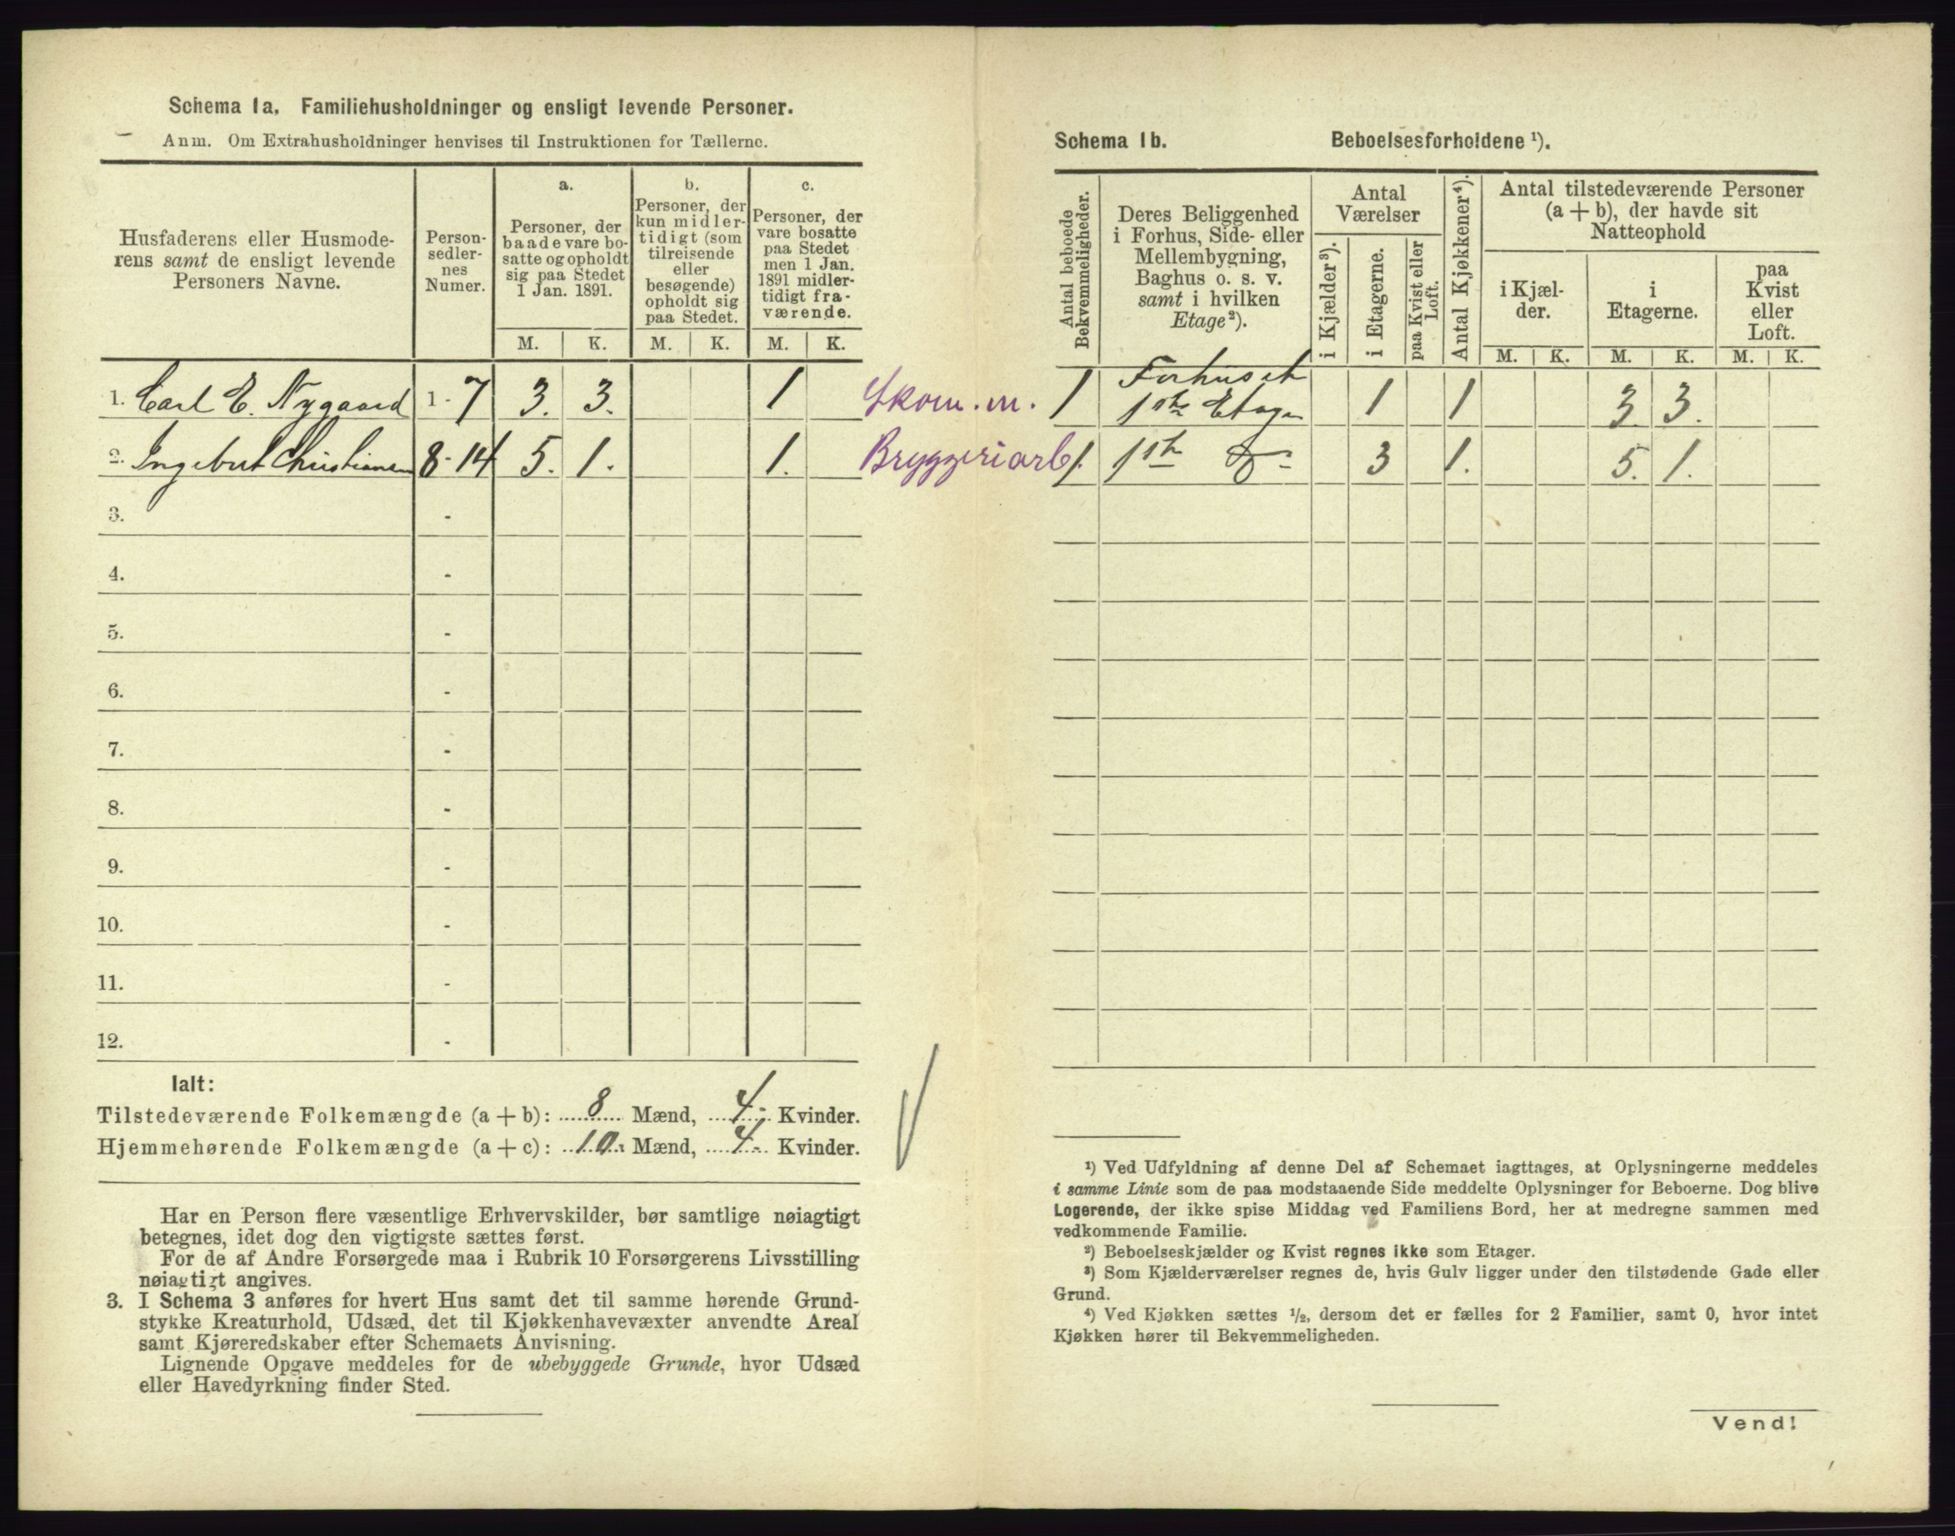 Schema 1a. Familiehusholdninger og ensligt levende Personer.
Anm. Om Extrahusholdninger henvises til Instruktionen for Tællerne.
Husfaderens eller Husmode-
rens samt de ensligt levende
Personers Navne.
Person-
sedler-
nes
Numer.
a.
Personer, der
baade vare bo-
satte og opholdt
sig paa Stedet
1 Jan. 1891.
b.
Personer, der
kun midler-
tidigt (som
tilreisende
eller
besøgende)
opholdt sig
paa Stedet.
c.
Personer, der
vare bosatte
paa Stedet
men 1 Jan.
1891 midler-
tidigt fra-
værende.
M. K. M. K. M. K.
1. Carl E. Nygaard 1-7 3. 3. 1 Skom. m.
2. Ingebret Christiansen 8-14 5. 1. 1. Bryggeriarb.
3. -
4. -
5. -
6. -
7. -
8. -
9. -
10. -
11. -
12. -
Ialt:
Tilstedeværende Folkemængde (a + b): 8 Mænd, 4- Kvinder.
Hjemmehørende Folkemængde (a + c): 10 Mænd, 4- Kvinder.
Har en Person flere væsentlige Erhvervskilder, bør samtlige nøiagtigt
betegnes, idet dog den vigtigste sættes først.
For de af Andre Forsørgede maa i Rubrik 10 Forsørgerens Livsstilling
nøiagtigt angives.
3. I Schema 3 anføres for hvert Hus samt det til samme hørende Grund-
stykke Kreaturhold, Udsæd, det til Kjøkkenhavevæxter anvendte Areal
samt Kjøreredskaber efter Schemaets Anvisning.
Lignende Opgave meddeles for de ubebyggede Grunde, hvor Udsæd
eller Havedyrkning finder Sted.
Schema 1b. Beboelsesforholdene ¹).
Antal beboede
Bekvemmeligheder.
Deres Beliggenhed
i Forhus, Side- eller
Mellembygning,
Baghus o. s. v.
samt i hvilken
Etage²).
Antal
Værelser
i Kjælder³).
i Etagerne.
paa Kvist eller
Loft.
Antal Kjøkkener⁴).
Antal tilstedeværende Personer
(a + b), der havde sit
Natteophold
i Kjæl-
der.
i
Etagerne.
paa
Kvist
eller
Loft.
M. K. M. K. M. K.
1 Forhuset
1ste Etage 1 1 3. 3.
1. 1ste do 3 1. 5. 1.
¹) Ved Udfyldning af denne Del af Schemaet iagttages, at Oplysningerne meddeles
i samme Linie som de paa modstaaende Side meddelte Oplysninger for Beboerne. Dog blive
Logerende, der ikke spise Middag ved Familiens Bord, her at medregne sammen med
vedkommende Familie.
²) Beboelseskjælder og Kvist regnes ikke som Etager.
³) Som Kjælderværelser regnes de, hvis Gulv ligger under den tilstødende Gade eller
Grund.
⁴) Ved Kjøkken sættes ½, dersom det er fælles for 2 Familier, samt 0, hvor intet
Kjøkken hører til Bekvemmeligheden.
Vend!